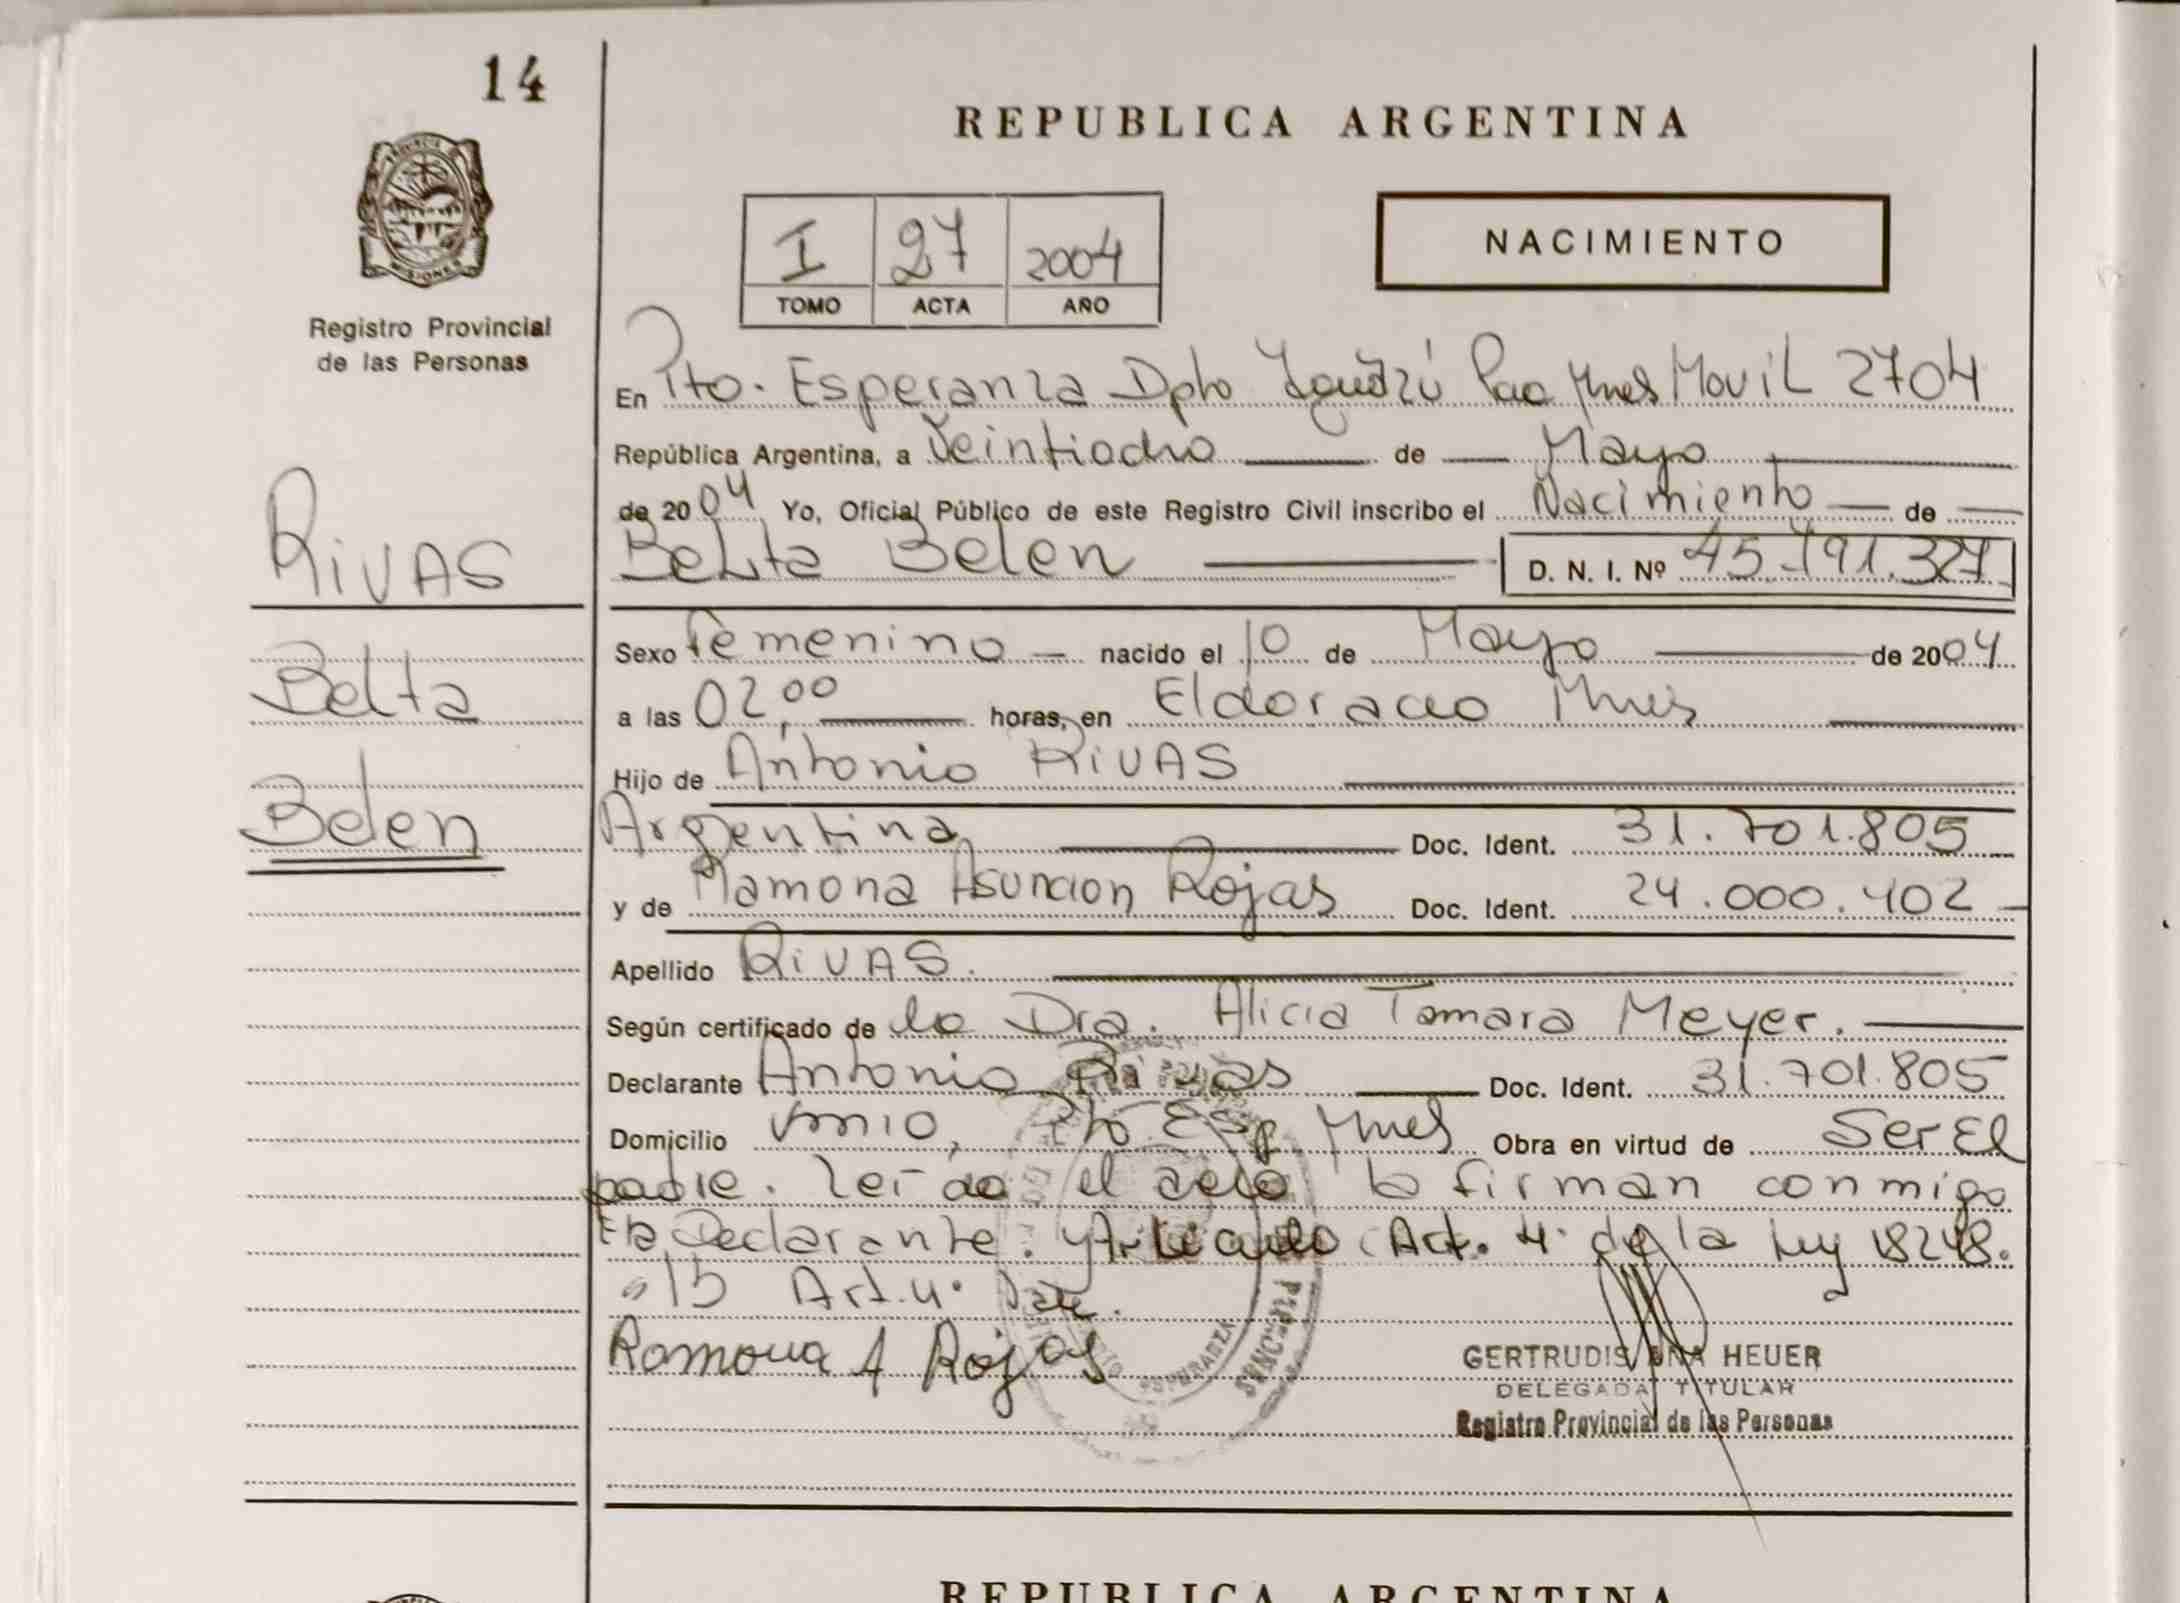 14
REPUBLICA ARGENTINA
NACIMIENTO
I 27 2004
TOMO ACTA AÑO
Registro Provincial
de las Personas
En Pto. Esperanza Dpto Iguazú Pcia Mnes Movil 2704
República Argentina, a Veintiocho de Mayo
de 2004 Yo, Oficial Público de este Registro Civil inscribo el Nacimiento de
Belita Belen D. N. I. Nº 45.791.327
RIVAS
Belta
Belen
Sexo Femenino nacido el 10 de Mayo de 2004
a las 02,00 horas, en Eldorado Mnes
Hijo de Antonio RIVAS
Argentina Doc. Ident. 31.701.805
y de Ramona Asuncion Rojas Doc. Ident. 24.000.402
Apellido RIVAS.
Según certificado de la Dra. Alicia Tamara Meyer.
Declarante Antonio Rivas Doc. Ident. 31.701.805
Domicilio Pto Esp Mnes Obra en virtud de Ser El
padre. Leido el acta la firman conmigo
Declarante. Articulo Art. 4. de la Ley 18248.
Art. 4.
Ramona A Rojas
ESPERANZA
GERTRUDIS HEUER
DELEGADA TITULAR
Registro Provincial de las Personas
REPUBLICA ARGENTINA